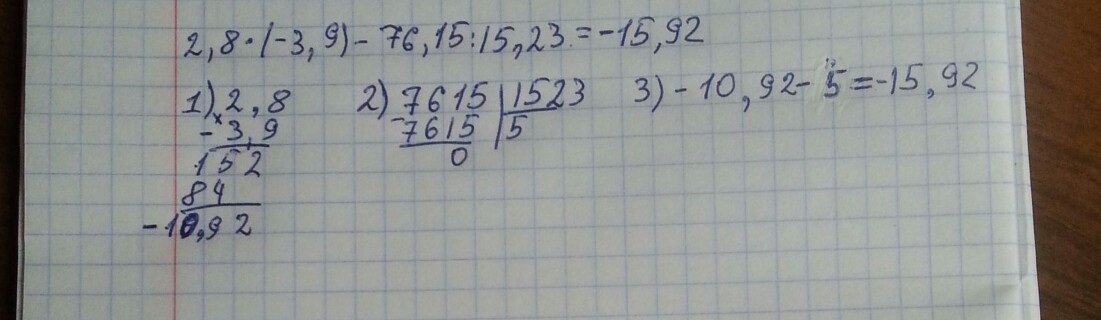 2,8·(-3,9)-76,15:15,23=-15,92
1) 2,8
× -3,9
152
84
-10,92
2) 7615 | 1523
-7615 | 5
0
3) -10,92-5=-15,92